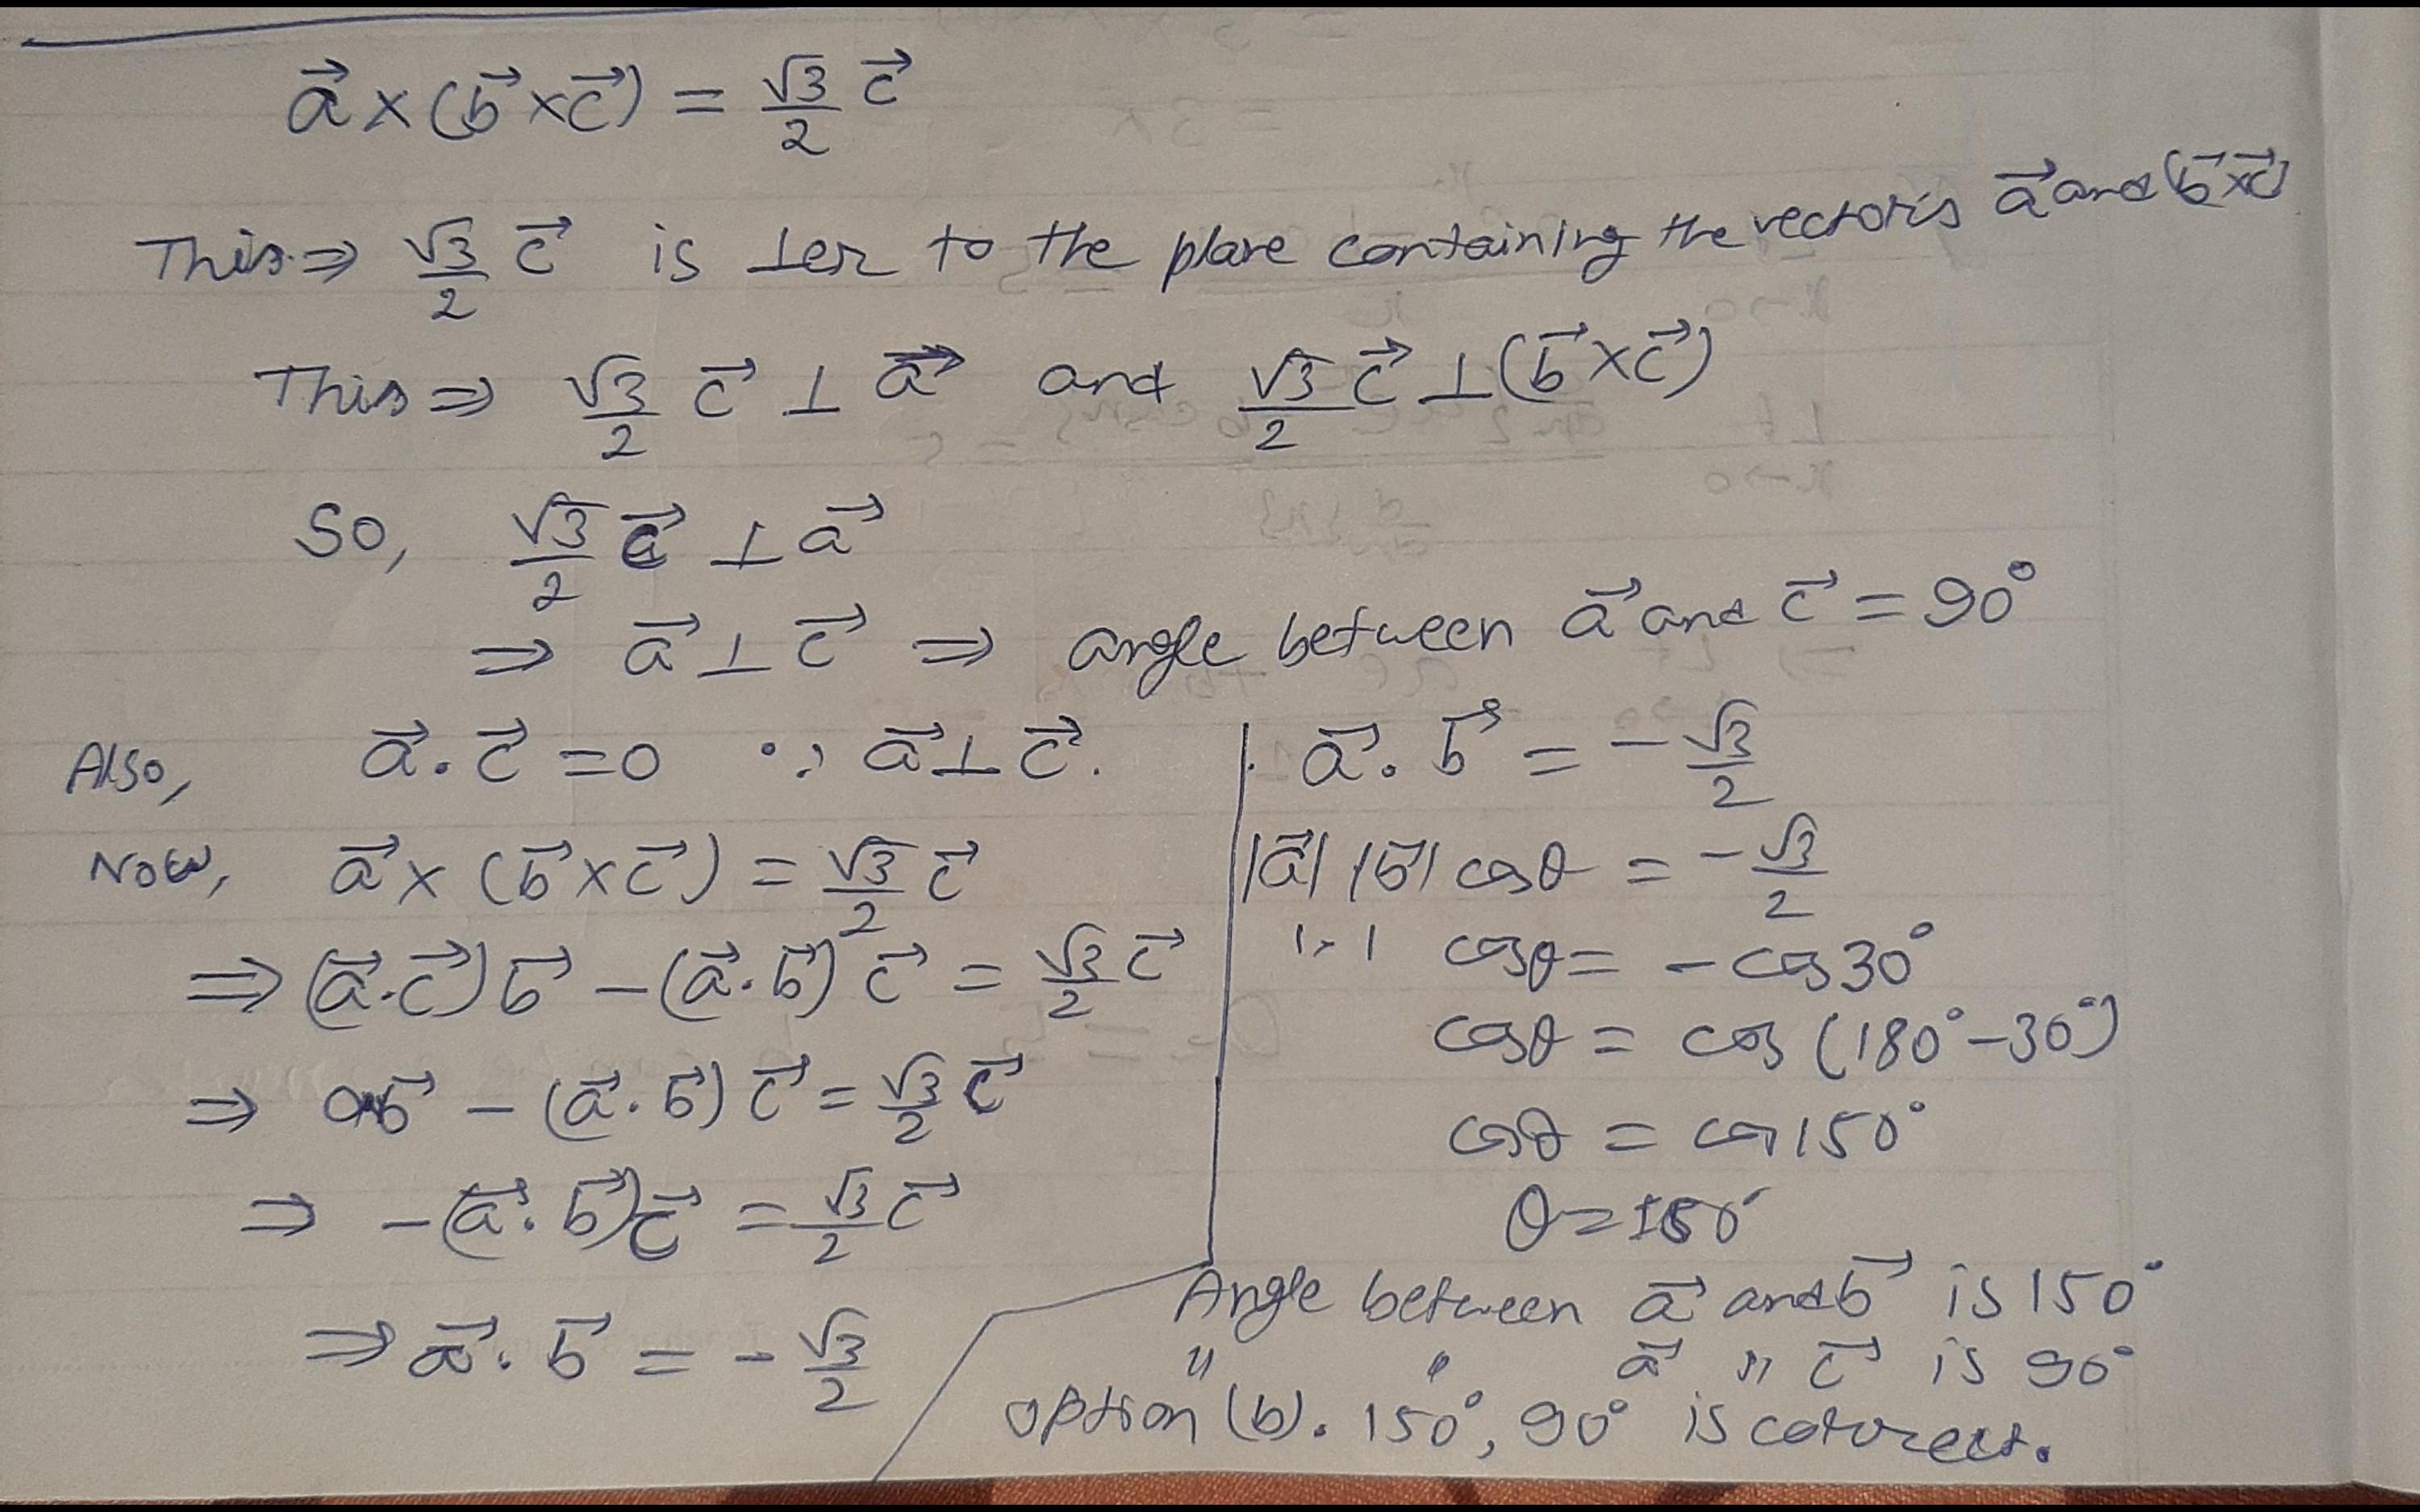 a⃗ × (b⃗ × c⃗) = √3/2 c⃗
This ⇒ √3/2 c⃗ is ⊥er to the plane containing the vectors a⃗ and (b⃗ × c⃗)
This ⇒ √3/2 c⃗ ⊥ a⃗ and √3/2 c⃗ ⊥ (b⃗ × c⃗)
So, √3/2 c⃗ ⊥ a⃗
⇒ a⃗ ⊥ c⃗ ⇒ angle between a⃗ and c⃗ = 90°
Also, a⃗ . c⃗ = 0 ∵ a⃗ ⊥ c⃗.
Now, a⃗ × (b⃗ × c⃗) = √3/2 c⃗
⇒ (a⃗ . c⃗) b⃗ − (a⃗ . b⃗) c⃗ = √3/2 c⃗
⇒ 0 b⃗ − (a⃗ . b⃗) c⃗ = √3/2 c⃗
⇒ − (a⃗ . b⃗) c⃗ = √3/2 c⃗
⇒ a⃗ . b⃗ = − √3/2
a⃗ . b⃗ = − √3/2
|a⃗| |b⃗| cosθ = − √3/2
1 . 1 cosθ = − cos 30°
cosθ = cos (180° − 30°)
cosθ = cos 150°
θ = 150°
Angle between a⃗ and b⃗ is 150°
" " a⃗ " c⃗ is 90°
option (b). 150°, 90° is correct.